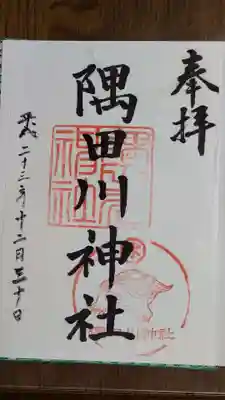 奉拝
隅田川神社
平成二十三年十二月三十日